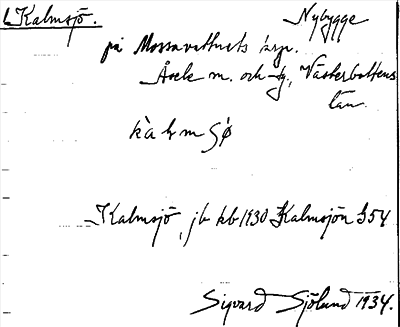 Kalmsjö. Nybygge
på Mossavattnets
Åsele m. och tg., Västerbottens
län.
kàlmsjø
Kalmsjö, jb kb 1930 Kalmsjön S54
Sigvard Sjölund 1934.